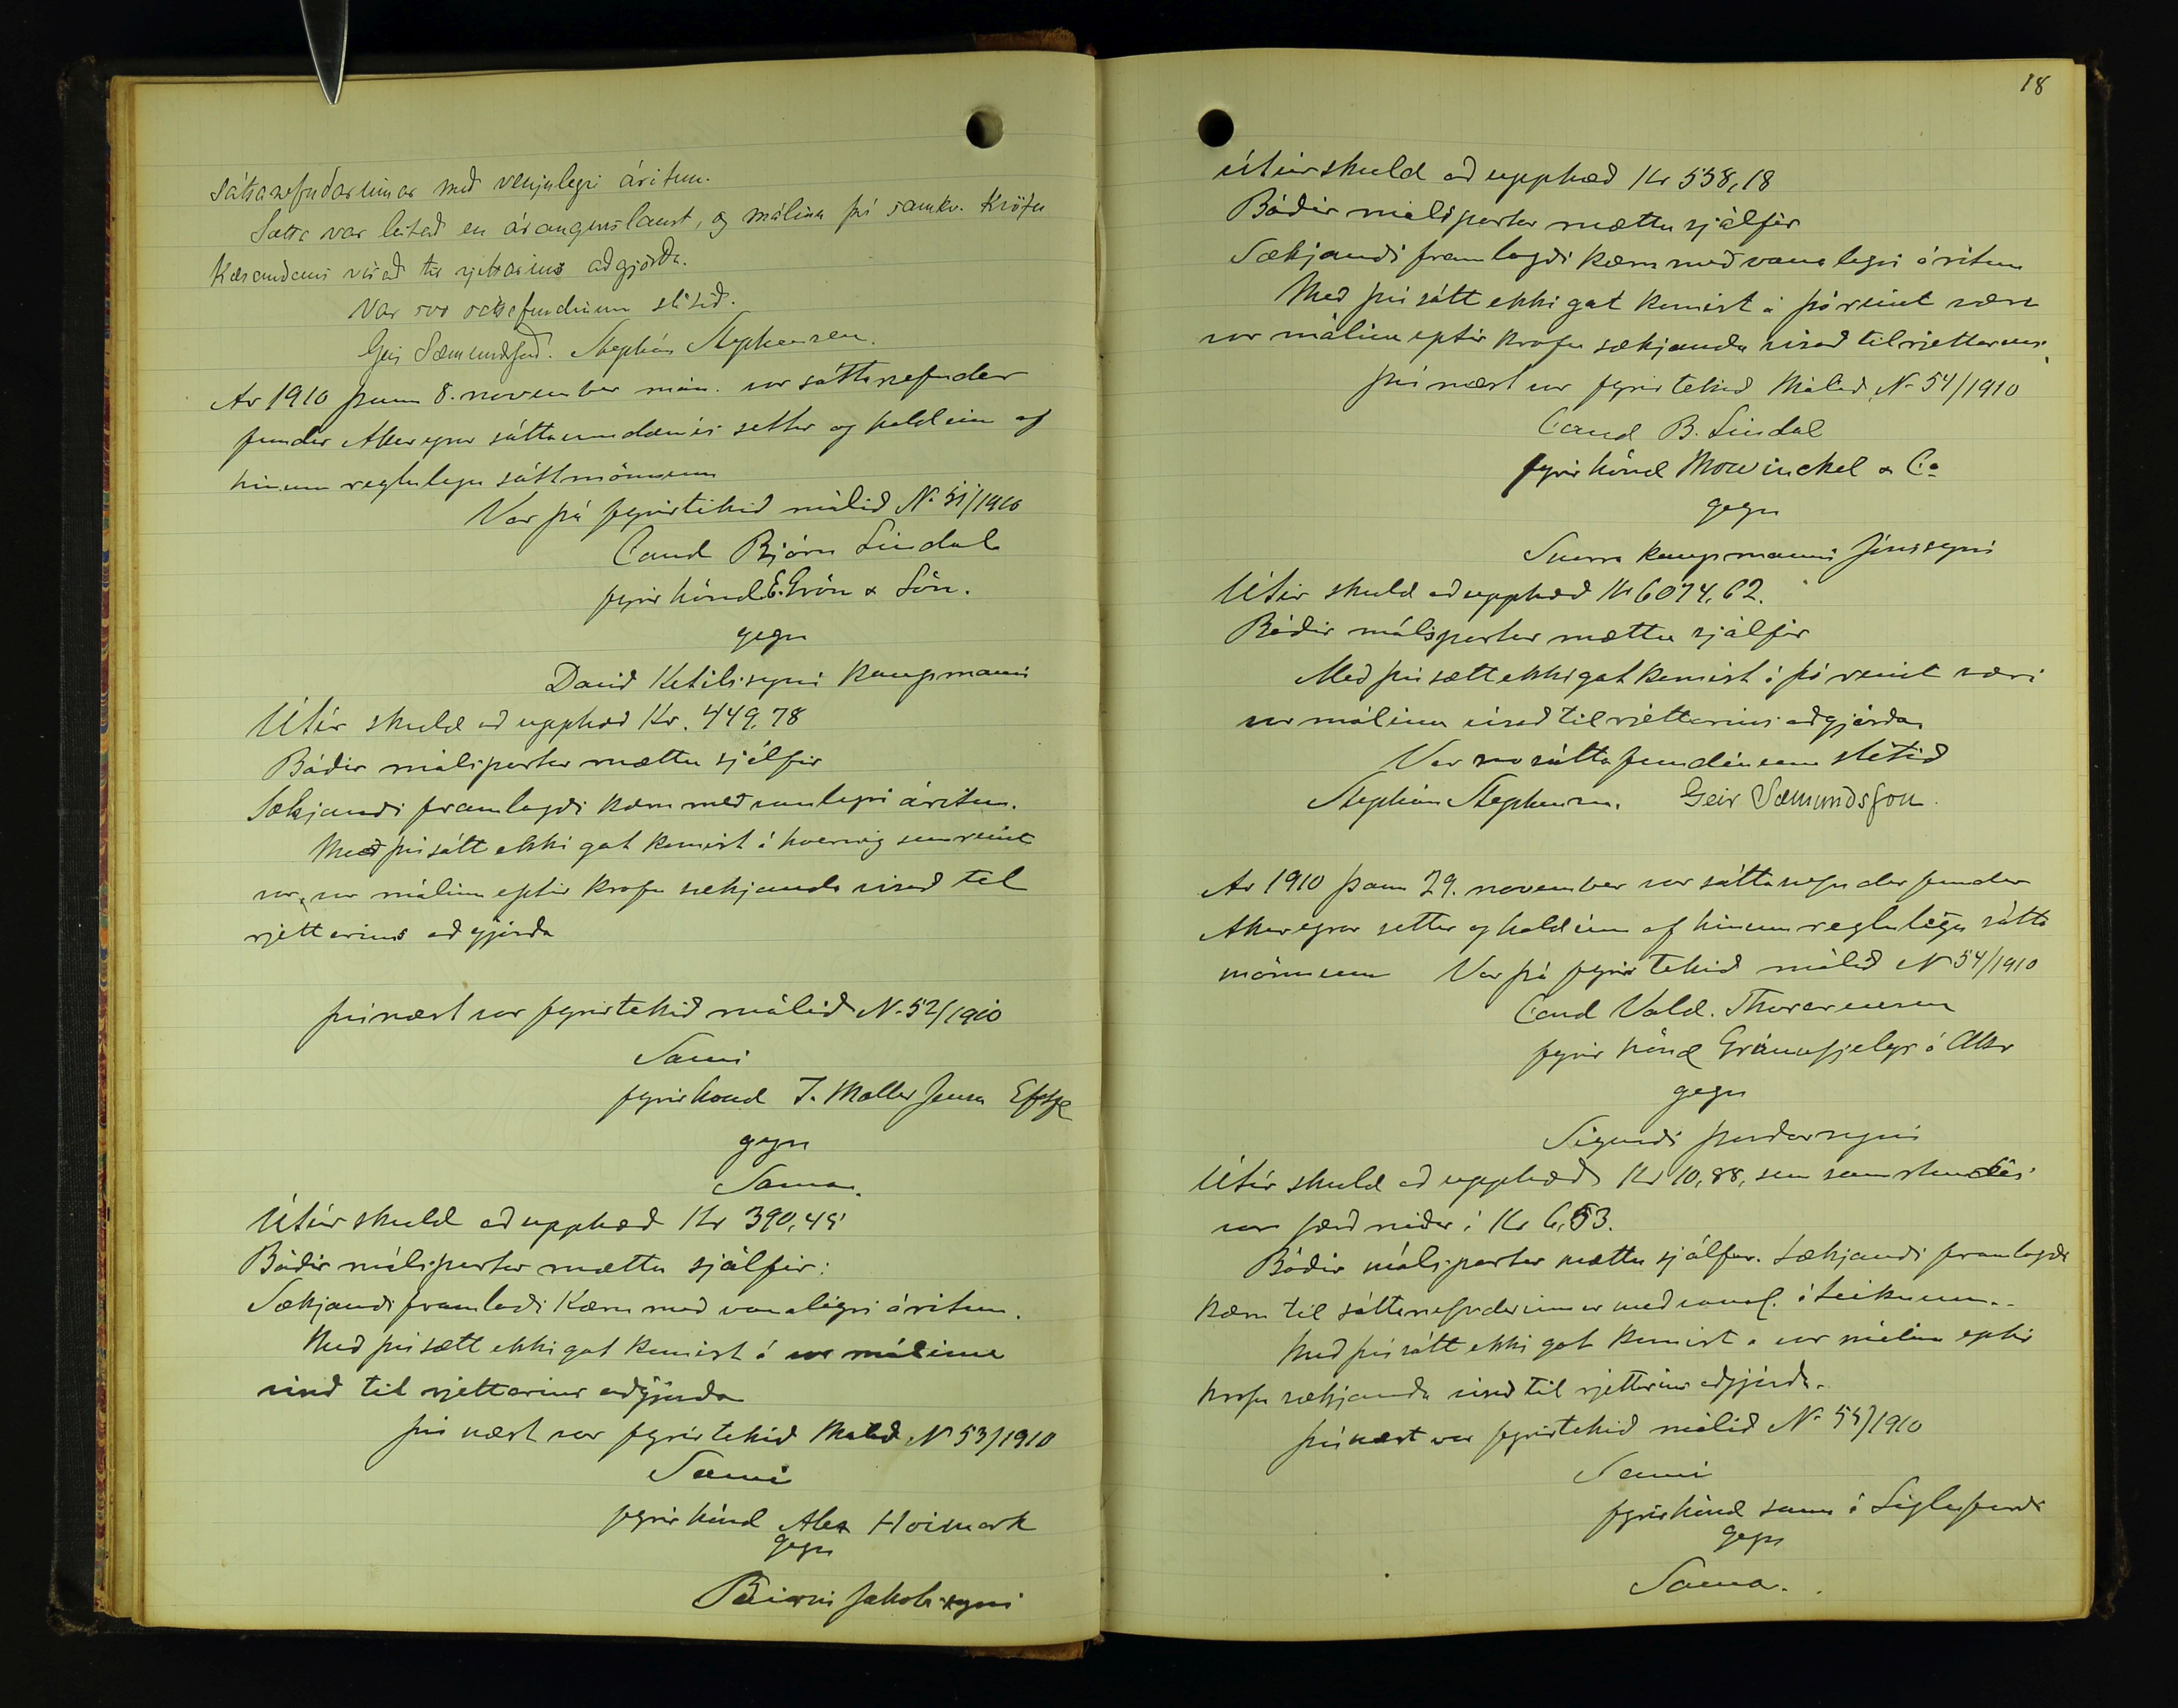 sáttanefndarinnar með venjulegri áritun.
Sætta var leitað en árangurslaust, og málinu því samkv. kröfu
kærandans vísað til rjettarins aðgjörða.
Var svo sáttafundinum slitið.
Geir Sæmundsson. Stephán Stephensen.
Ár 1910 þann 8. november mán. var sáttanefndar
fundur Akureyrar sáttaumdæmis settur og haldinn af
hinum reglulegu sáttmönnum
Var þá fyrirtekið málið N. 51/1910
Cand Björn Lindal
fyrir hönd E. Grön & Sön.
gegn
Davið Ketilssyni kaupmanni
Útúr skuld að upphæð Kr. 449,78
Báðir málspartar mættu sjálfir
Sækjandi framlagði kæru með vanlegri áritun.
Með því sátt ekki gat komist á hvernig sem reint
var, var málinu eptir kröfu sækjanda vísað til
rjettarins aðgjörða
þvínæst var fyrirtekið málið N. 52/1910
Sami
fyrir hönd J. Møller Jensen Eftf
gegn
Sama.
Útúr skuld að upphæð Kr 390,45
Báðir málspartar mættu sjálfir:
Sækjandi framlaði kæru með vanalegri áritun.
Með því sætt ekki gat komist á var málinu
vísað til rjettarins aðgjörða
því næst var fyrirtekið Málið N 53/1910
Sami
fyrir hönd Alex Hoimark
gegn
Bjarni Jakobssyni
18
Útúr skuld að upphæð Kr 538,18
Báðir málspartar mættu sjálfir
Sækjandi framlagði kæru með vanalegri áritun
Með því sátt ekki gat komist á þó reint være
var málinu eptir kröfu sækjanda vísað til rjettarins
því næst var fyrirtekið Málið N. 54/1910
Cand B. Lindal
fyrir hönd Mowinckel & Co
gegn
Snorra kaupmanni Jónssyni
Útúr skuld að upphæð Kr 6074,62.
Báðir málspartar mættu sjálfir
Með því sætt ekki gat komist á þó reint væri
var málinu vísað til rjettarins aðgjörða
Var svo sáttafundinum slitið
Stephán Stephensen. Geir Sæmundsson.
Ár 1910 þann 29. november var sáttanefndar fundur
Akureyrar settur og haldinn af hinum reglulegu sátta
mönnum Var þá fyrir tekið málið N 54/1910
Cand Vald. Thorarensen
fyrir hönd Gránufjelags á Akr
gegn
Sigurði Þórðarsyni
Útúr skuld að upphæð Kr 10,88, sem samstundis
var færð niður í Kr 6,53.
Báðir málspartar mættu sjálfir. Sækjandi framlagði
kæru til sáttanefndarinnar með vanal. áteiknun.
Með því sátt ekki gat komist á var málinu eptir
kröfu sækjanda vísað til rjettarins aðgjörða.
þvínæst var fyrirtekið málið N. 55/1910
Sami
fyrir hönd sama á Siglufirði
gegn
Sama.